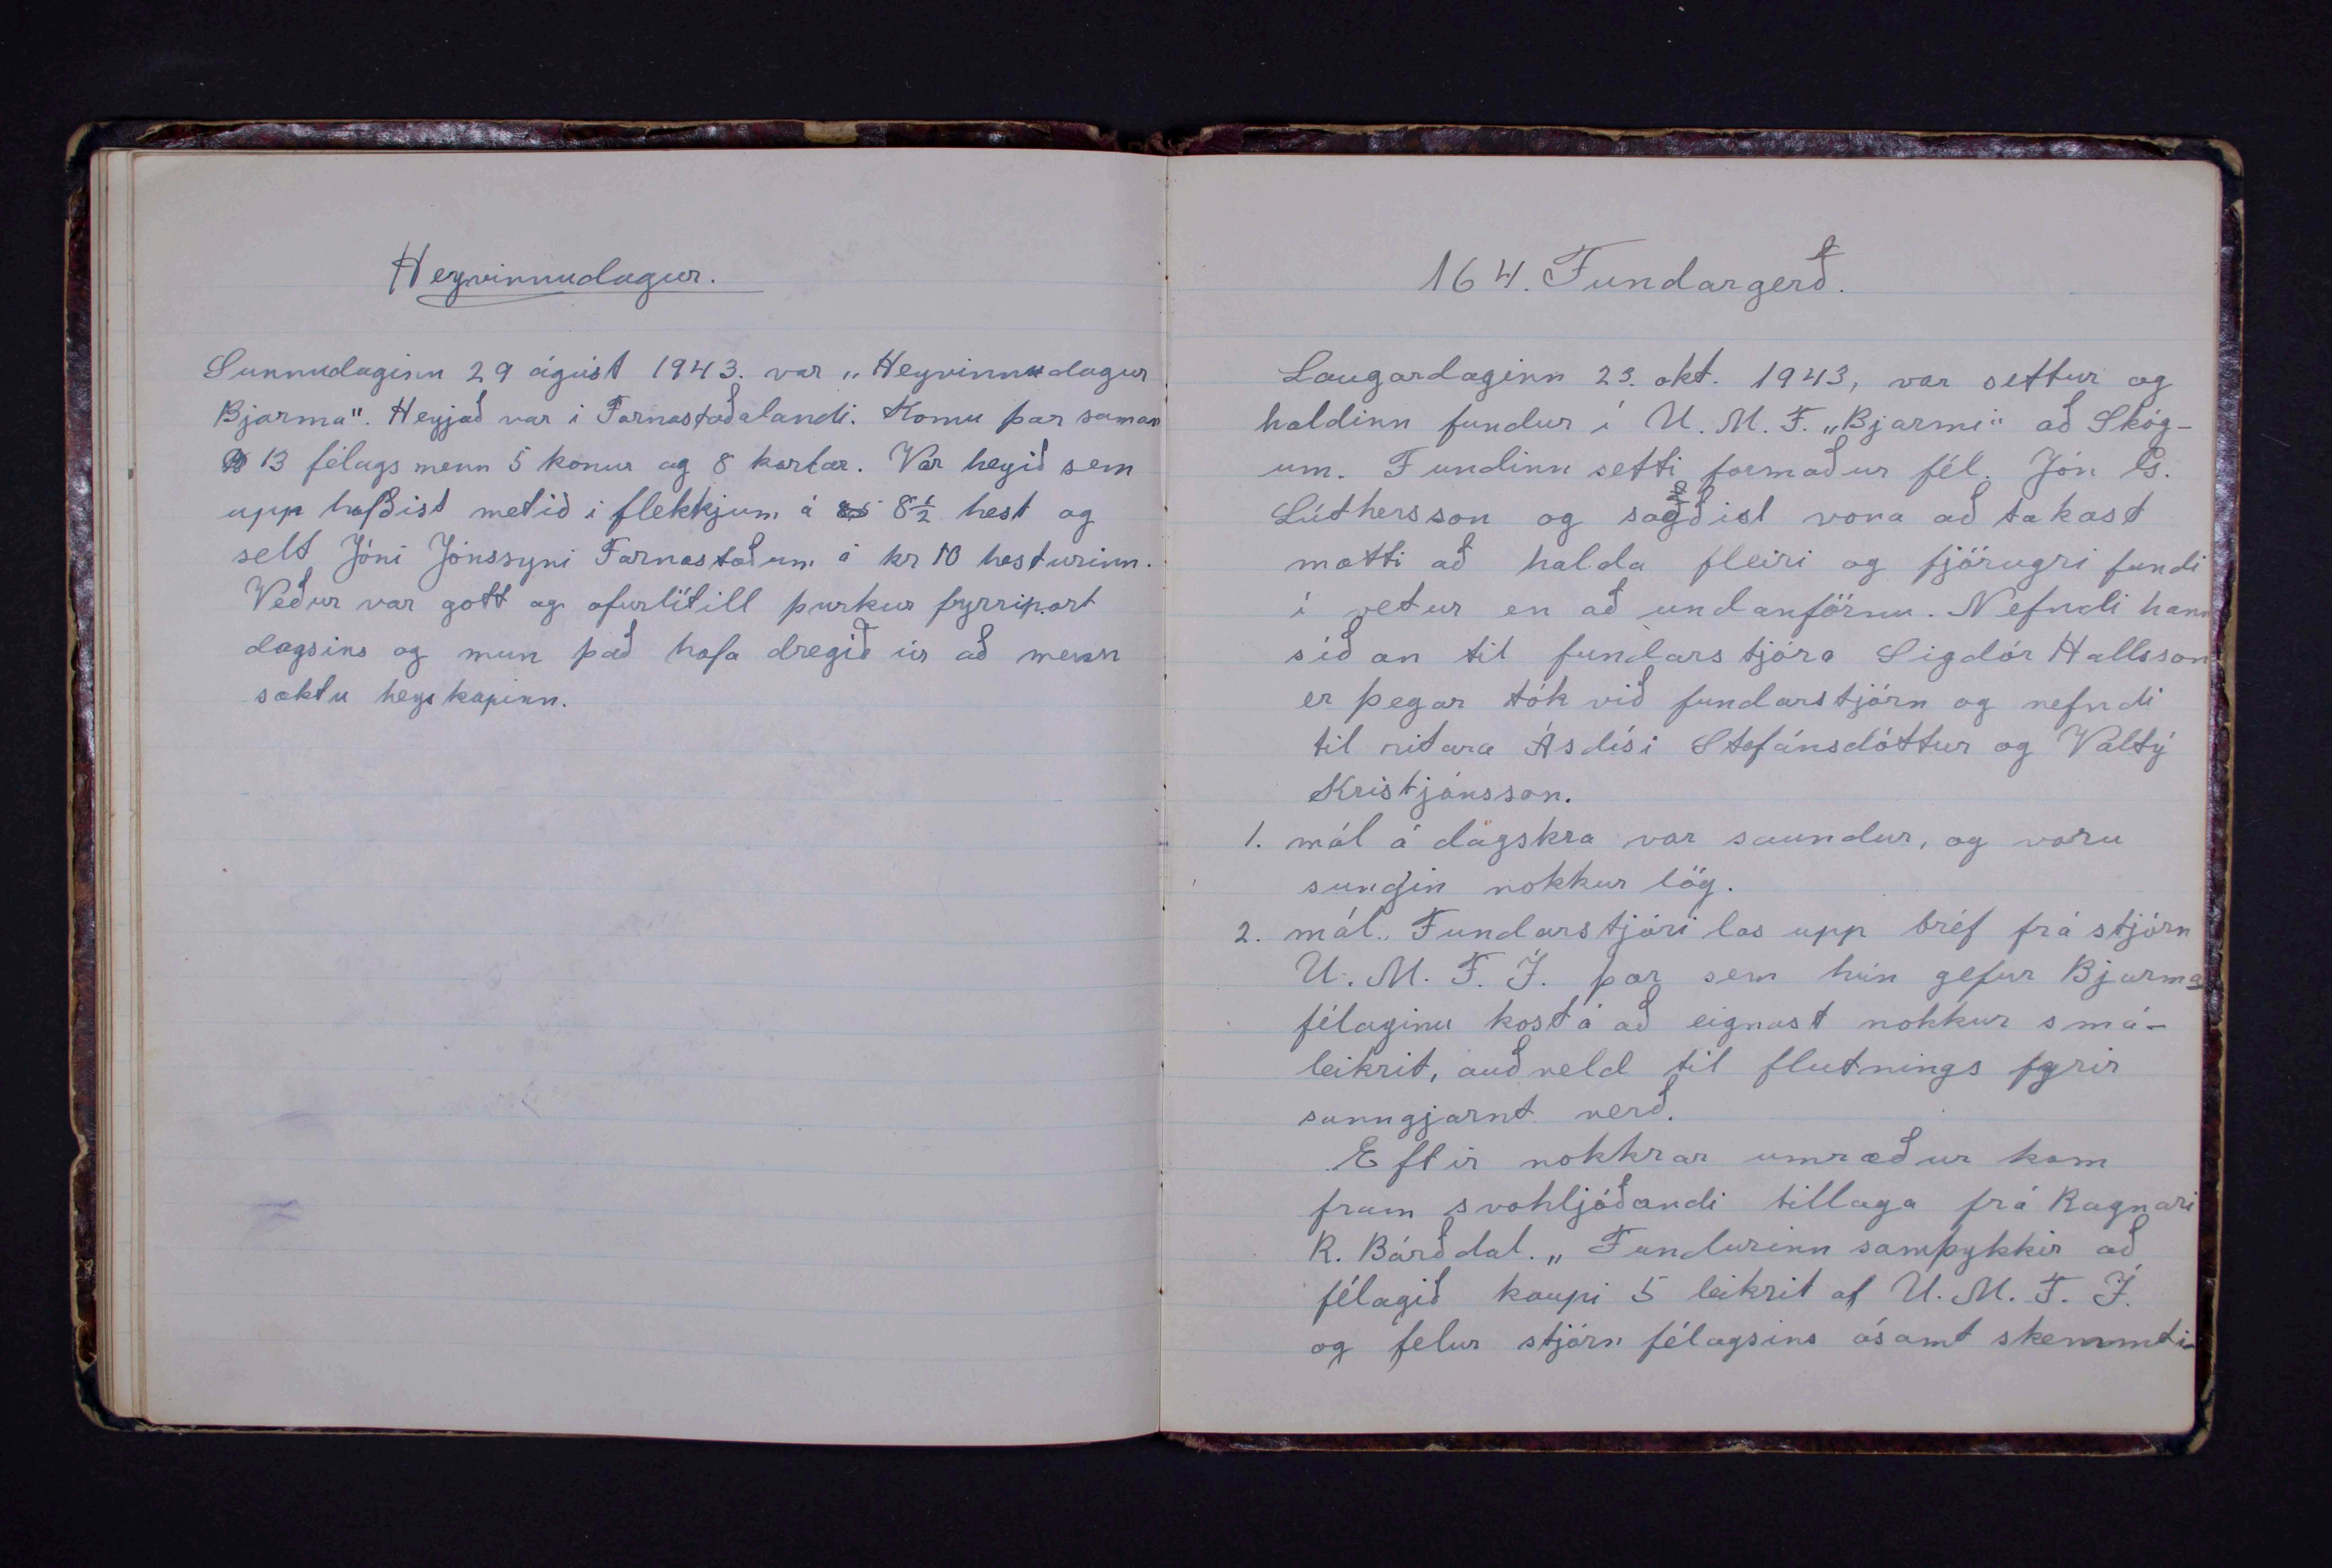 Heyvinnudagur.
Sunnudaginn 29 ágúst 1943. var „Heyvinnudagur
Bjarma". Heyjað var í Farnastaðalandi. Komu þar saman
13 félagsmenn 5 konur og 8 karlar. Var heyið sem
upp hafðist metið í flekkjum á 8½ hest og
selt Jóni Jónssyni Farnastöðum á kr 10 hesturinn.
Veður var gott og ofurlítill þurkur fyrripart
dagsins og mun það hafa dregið úr að menn
sæktu heyskapinn.
164. Fundargerð.
Laugardaginn 23. okt. 1943, var settur og
haldinn fundur í U. M. F. „Bjarmi" að Skóg-
um. Fundinn setti formaður fél. Jón G.
Lúthersson og sagðist vona að takast
mætti að halda fleiri og fjörugri fundi
í vetur en að undanförnu. Nefndi hann
síðan til fundarstjóra Sigdór Hallsson
er þegar tók við fundarstjórn og nefndi
til ritara Ásdísi Stefánsdóttur og Valtý
Kristjánsson.
1. mál á dagskra var saundur, og voru
sungin nokkur lög.
2. mál. Fundarstjóri las upp bréf frá stjórn
U. M. F. Í. þar sem hún gefur Bjarma
félaginu kost á að eignast nokkur smá-
leikrit, auðveld til flutnings fyrir
sanngjarnt verð.
Eftir nokkrar umræður kom
fram svohljóðandi tillaga frá Ragnari
R. Bárðdal. „Fundurinn samþykkir að
félagið kaupi 5 leikrit af U. M. F. Í.
og felur stjórn félagsins ásamt skemmti-